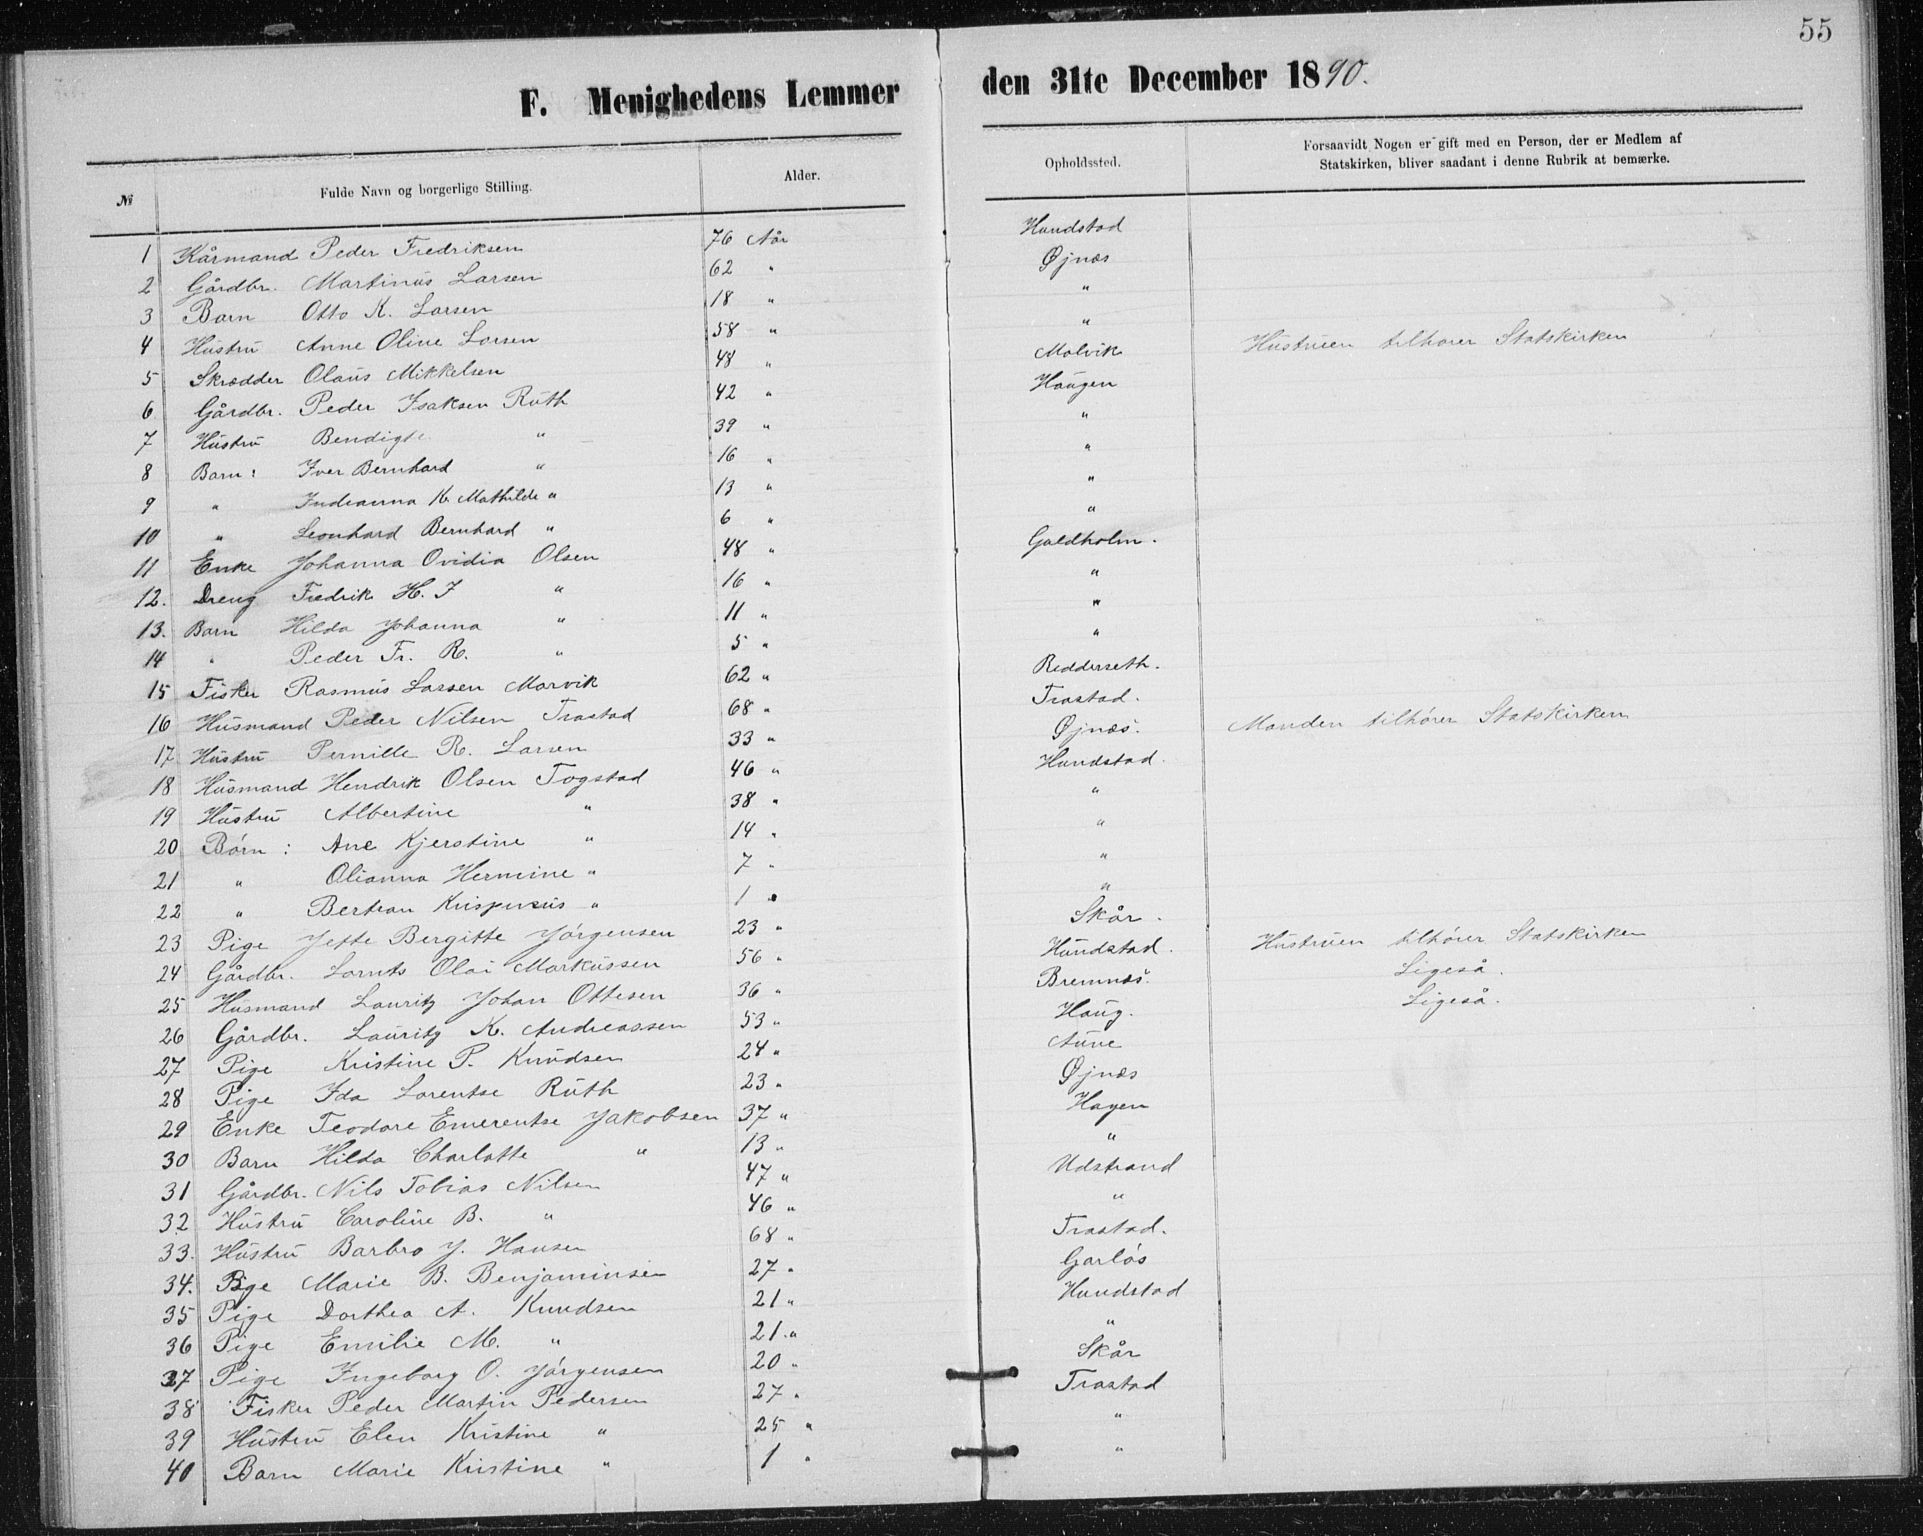 55
F. Menighedens Lemmer den 31te December 1890.
№ Fulde Navn og borgerlige Stilling. Alder. Opholdssted. Forsaavidt Nogen er gift med en Person, der er Medlem af
Statskirken, bliver saadant i denne Rubrik at bemærke.
1 Kårmand Peder Fredriksen 76 Aar Hundstad
2 Gårdbr. Martinus Larsen 62 " Øjnæs
3 Barn Otto K. Larsen 18 " "
4 Hustru Anne Oline Larsen 58 " "
5 Skrædder Olaus Mikkelsen 48 " Malvik Hustruen tilhører Statskirken
6 Gårdbr. Peder Isaksen Ruth 42 " Haugen
7 Hustru Bendigte " 39 " "
8 Barn: Iver Bernhard " 16 " "
9 " Indianna K. Mathilde " 13 " "
10 " Leonhard Bernhard " 6 " "
11 Enke Johanna Ovidia Olsen 48 " Galdholm.
12. Dreng Fredrik H. J " 16 " "
13. Barn Hilda Johanna " 11 " "
14 " Peder Fr. R. " 5 " "
15 Fisker Rasmus Larsen Marvik 62 " Redderseth.
16 Husmand Peder Nilsen Trastad 68 " Trastad.
17 Hustru Pernille R. Larsen 33 " Øjnæs. Manden tilhører Statskirken
18 Husmand Hendrik Olsen Fogstad 46 " Hundstad.
19 Hustru Albertine " 38 " "
20 Børn: Ane Kjerstine " 14 " "
21 " Olianna Hermine " 7 " "
22 " Bertean Krispinus " 1 " "
23 Pige Jette Bergitte Jørgensen 23 " Skår.
24 Gårdbr. Lornts Olai Markussen 56 " Hundstad. Hustruen tilhører Statskirken
25 Husmand Lauritz Johan Ottesen 36 " Bremnæs. Ligeså.
26 Gårdbr. Lauritz K. Andreassen 53 " Haug. Ligeså.
27 Pige Kristine P. Knudsen 24 " Aune
28 Pige Ida Lorentse Ruth 23 " Øjnæs
29 Enke Teodore Emerentse Jakobsen 37 " Hagen
30 Barn Hilda Charlotte " 13 " "
31 Gårdbr. Nils Tobias Nilsen 47 " Udstrand
32 Hustru Caroline B. " 46 " "
33. Hustru Barbro J. Hansen 68 " Trastad.
34. Pige Marie B. Benjaminsen 27 " Garløs
35 Pige Dorthea A. Knudsen 21 " Hundstad
36 Pige Emilie M. " 21 " "
37 Pige Ingeborg O. Jørgensen 20 " Skår
38 Fisker Peder Martin Pedersen 27 " Trastad
39 Hustru Elen Kristine " 25 " "
40 Barn Marie Kristine " 1 " "